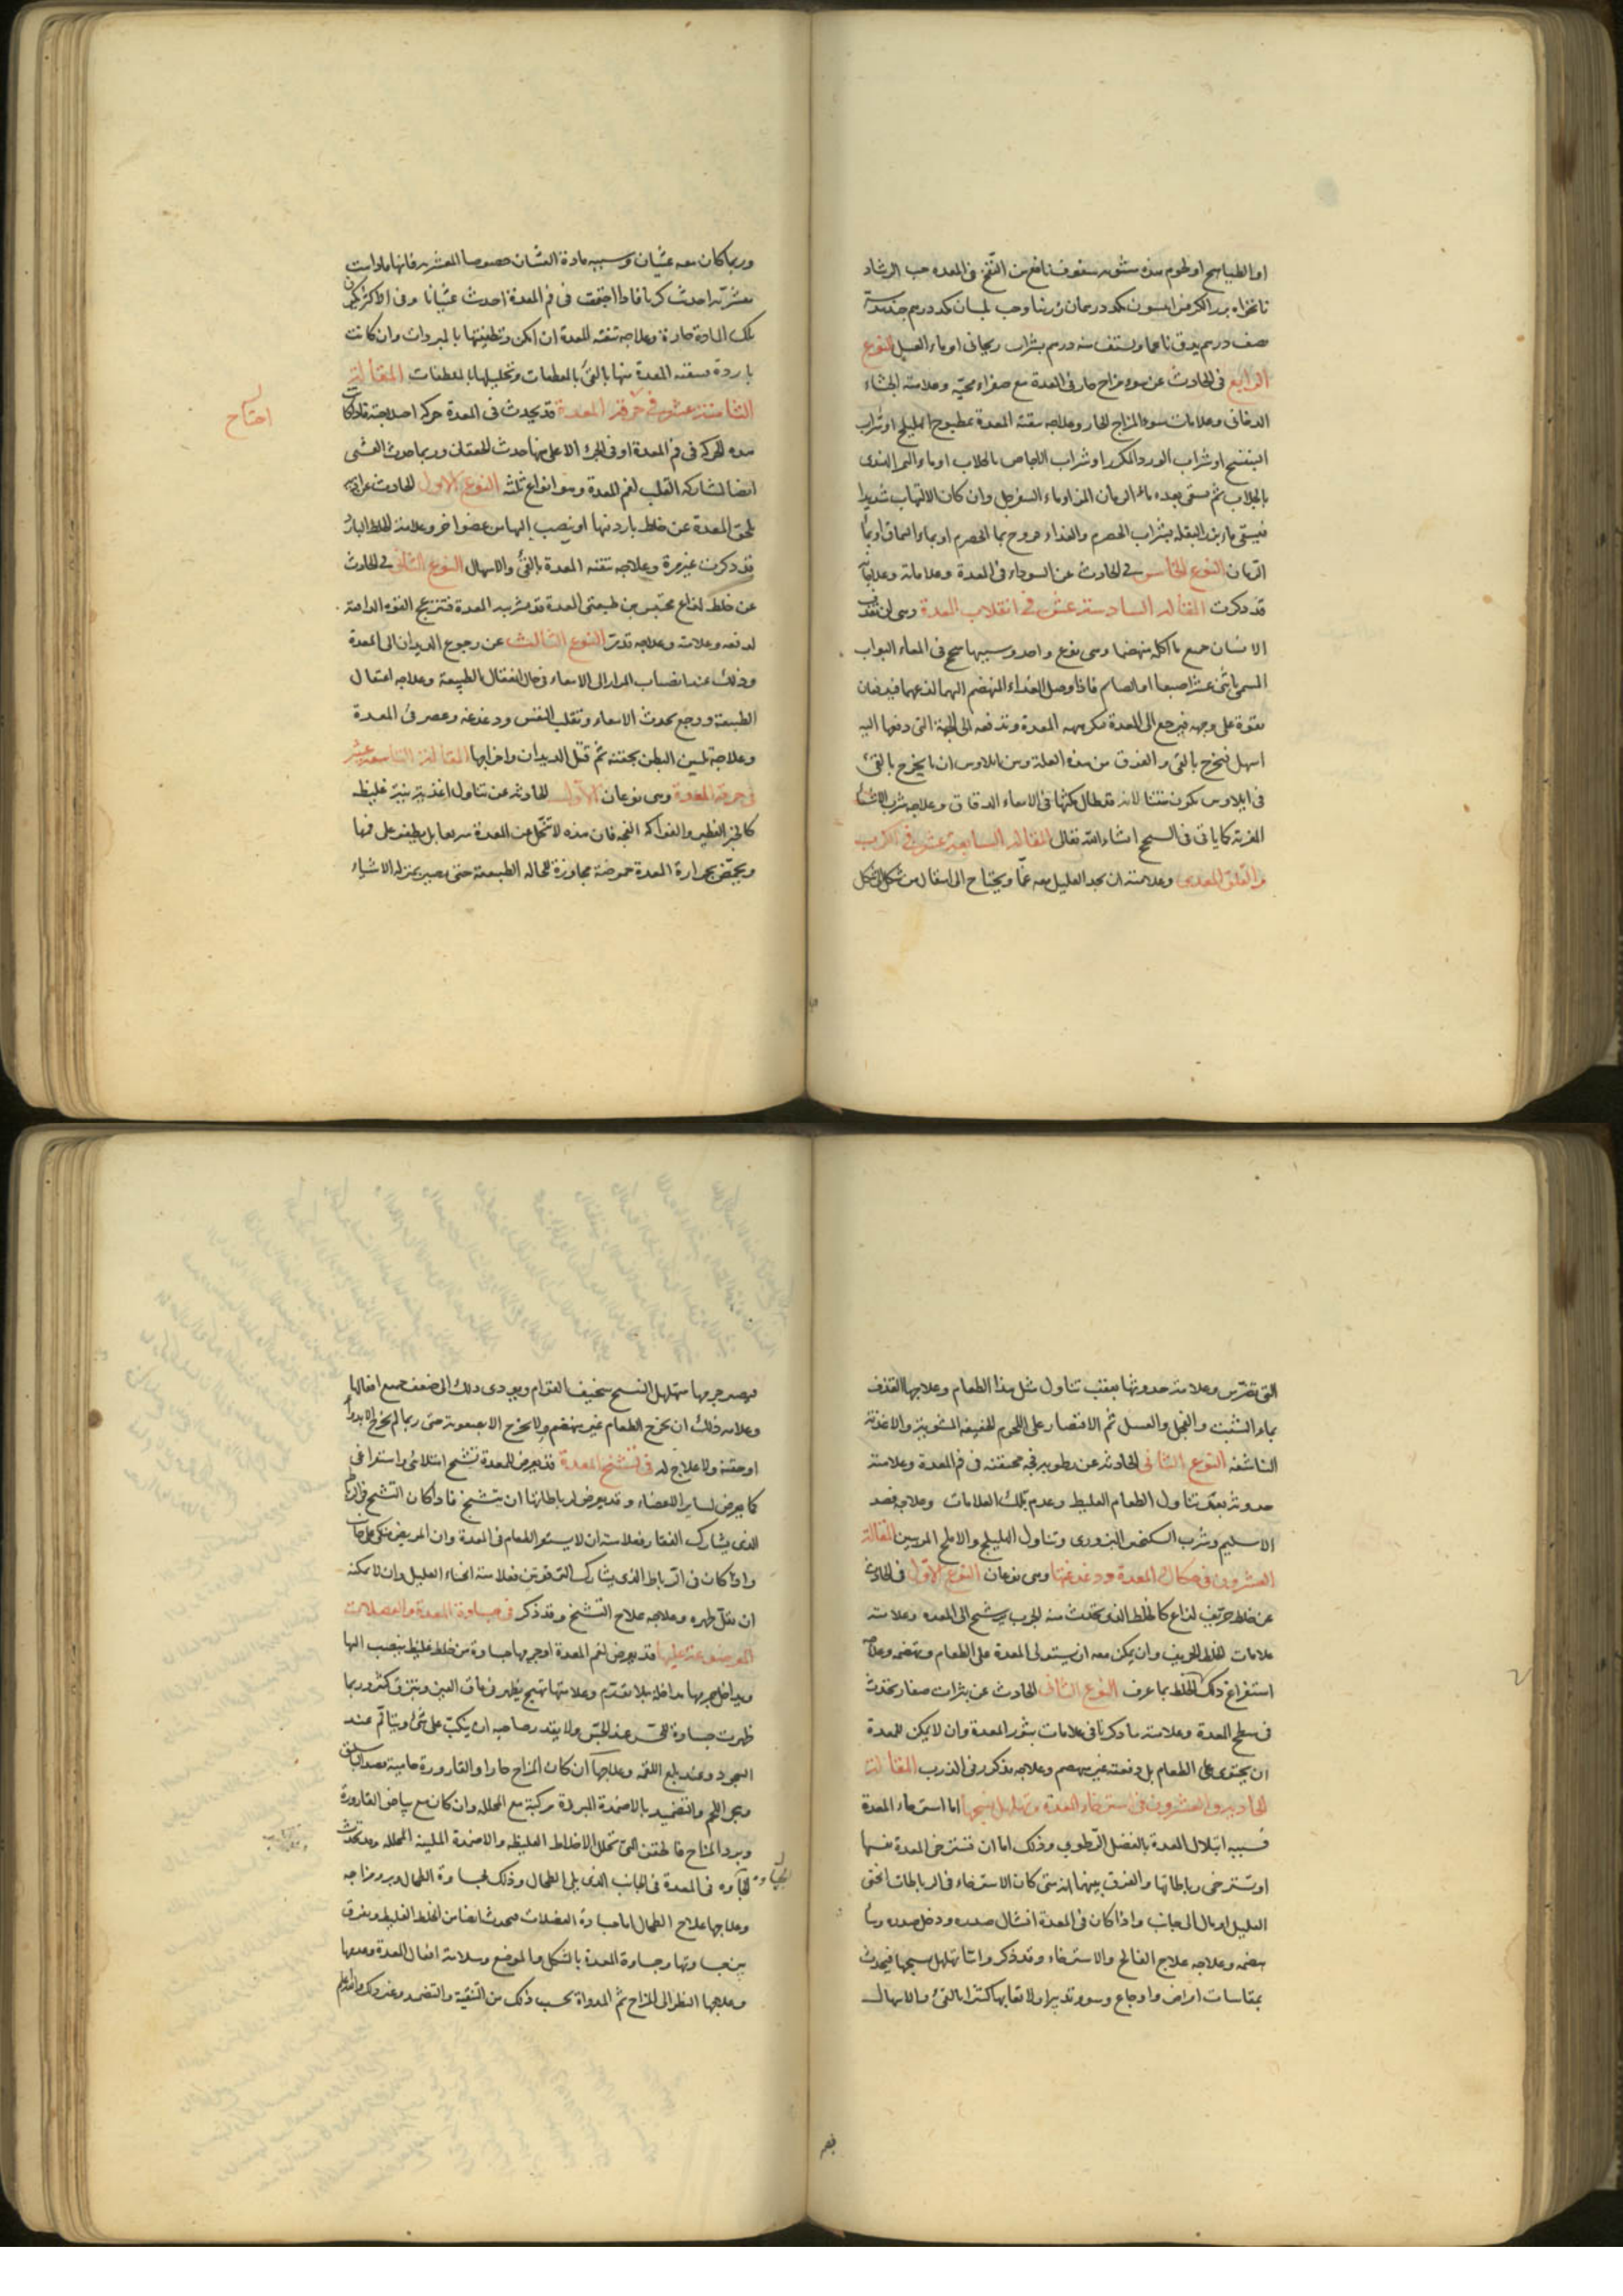 او الطياهيج او لحوم هذه مشويه سفوف نافع من النفخ فى المعده حب الرشاد
نانخواه بزر الكرفس انيسون من كل درهمان زرنبا وحب بلسان من كل درهم جندبيدستر
نصف درهم يدق ناعما ويستف منه درهم بشراب ريحانى او ماء العسل النوع
الرابع فى الحادث عن سوء مزاج حار فى المعدة مع صفراء محيه وعلامته الجشاء
الدخانى وعلامات سوء المزاج الحار وعلاجه تنقية المعدة بمطبوخ الهليلج او شراب
البنفسج او شراب الورد المكرر او شراب الاجاص بالجلاب او ماء التمر الهندى
بالجلاب ثم يسقى بعده ماء الرمان المز او ماء السفرجل وان كان الالتهاب شديدا
فيسقى ماء بزر البقله بشراب الحصرم والغذاء فروج بماء الحصرم او بماء السماق او بماء
الرمان النوع الخامس فى الحادث عن السوداء فى المعدة وعلاماته وعلاجه
قد ذكرت المقاله السادسة عشر فى انقلاب المعدة وهى ان يقذف
الانسان جميع ما اكله منهضما وهى نوع واحد وسببها سحج فى المعاء البواب
المسمى باثنى عشر اصبعا او الصايم فاذا وصل الغذاء المنهضم اليهما لذعهما فيدفعان
بقوة على وجهه فيرجع الى المعدة فكرهته المعدة وتدفعه الى الجهة التى دفعها اليه
اسهل فيخرج بالقئ والفرق بين هذه العلة وبين ايلاوس ان ما يخرج بالقئ
فى ايلاوس يكون منتنا لانه قد طال مكثها فى الامعاء الدقاق وعلاجه شرب الاشياء
المغرية كما ياتى فى السحج انشاء الله تعالى المقاله السابعة عشر فى الكرب
والقلق المعدى وعلامته ان يجد العليل معه غما ويحتاج الى انتقال من شكل الى شكل
وربما كان معه غثيان وسببه مادة الغثيان خصوصا المتشربه فانها ما دامت
متشربة احدث كربا فاذا اجتمعت فى فم المعدة احدث غثيانا وفى الاكثر يكون
تلك المادة حارة وعلاجه تنقية المعدة ان امكن وتطفيتها بالمبردات وان كانت
باردة فتنقية المعدة منها بالقئ بالمقطعات وتحليلها بالملطفات المقالة
الثامنة عشر فى حرقة المعدة قد يحدث فى المعدة حركة اختلاجية فاذا كانت
هذه الحركة فى فم المعدة او فى الجزء الاعلى منها حدث الخفقان وربما حدث الغشى
ايضا لمشاركة القلب لفم المعدة وهو انواع ثلثة النوع الاول الحادث عن اذى
يلحق المعدة عن خلط بارد فيها او ينصب اليها من عضو اخر وعلامة الخلط البارد
قد ذكرت غير مرة وعلاجه تنقية المعدة بالقئ والاسهال النوع الثانى فى الحادث
عن خلط لذاع محتبس بين طبقتى المعدة قد تشربه المعدة فتنزعج القوه الدافعة
لدفعه وعلامته وعلاجه قد مر النوع الثالث عن رجوع الديدان الى المعدة
وذلك عند انصباب المرار الى الامعاء فى حال اعتقال الطبيعة وعلاجه اعتقال
الطبيعة ووجع يحدث الامعاء وتقلب النفس ودغدغة وعصر فى المعدة
وعلاجه تليين البطن بحقنة ثم قتل الديدان واخراجها المقالة التاسعة عشر
فى حرقة المعدة وهى نوعان الاول الحادث عن تناول اغذية نيئة غليظة
كالخبز الفطير والفواكه الفجه فان هذه لا تنحل عن المعدة سريعا بل يطفو على فمها
ويحمض بحرارة المعدة حموضة مجاوزة للحاله الطبيعة حتى يصير بمنزلة الاشياء
احتاج
التى تضرس وعلامة حدوثها بعقب تناول مثل هذا الطعام وعلاجها القذف
بماء الشبت والفجل والعسل ثم الاقتصار على اللحوم الخفيفة المشوية والاغذية
الناشفه النوع الثانى الحادث عن رطوبة فجه محتقنة فى فم المعدة وعلامته
حدوثه بعد تناول الطعام الغليظ وعدم تلك العلامات وعلاجه فصد
الاسليم وشرب السكنجبين البزورى وتناول الهليلج والاملج المربيين المقالة
العشرون فى حكاك المعدة ودغدغتها وهى نوعان النوع الاول فى الحادث
عن خلط حريف لذاع كالخلط الذى يحدث منه الجرب يترشح الى المعده وعلامته
علامات الخلط الحريف وان يمكن معه ان يستولى المعدة على الطعام وتهضمه وعلاجه
استفراغ ذلك الخلط بما عرف النوع الثانى الحادث عن بثرات صغار تحدث
فى سطح المعدة وعلامته ما ذكرنا فى علامات بثور المعدة وان لا يمكن للمعدة
ان يحتوى على الطعام بل دفعته غير منهضم وعلاجه مذكور فى الذرب المقالة
الحادية والعشرون فى استرخاء المعدة وتهلهل نسجها اما استرخاء المعدة
فسببه ابتلال المعدة بالفضل الرطوبى وذلك اما ان تسترخى المعدة نفسها
او تسترخى رباطاتها والفرق بينهما انه متى كان الاسترخاء فى الرباطات انحنى
العليل او مال الى جانب واذا كان فى المعدة انشال صدره ودخل صدره وساء
هضمه وعلاجه علاج الفالج والاسترخاء وقد ذكر واما تهلهل نسجها فيحدث
بمقاسات امراض واوجاع وسوء تدبير او لاتعابها كثيرا بالقئ والاسهال
فيصير جرمها متهلهل النسج سخيف القوام ويودى ذلك الى ضعف جميع افعالها
وعلامه ذلك ان يخرج الطعام غير منهضم ولا يخرج الا بصعوبة حتى ربما لم يخرج الا بدواء
او حقنة ولا علاج له فى تشنج المعدة قد يعرض للمعدة تشنج امتلائى واستفراغى
كما يعرض لساير الاعضاء وقد يعرض لرباطاتها ان يتشنج فاذا كان التشنج فى الرباط
الذى يشارك الفقار فعلامته ان لا يستقر الطعام فى المعدة وان المريض متكئ على جانب
واذا كان فى الرباط الذى يشارك الترقوتين فعلامته انحناء العليل وان لا يمكنه
ان يقل ظهره وعلاجه علاج التشنج وقد ذكر فى جساوة المعدة والعضلات
الموضوعة عليها قد يعرض لفم المعدة او جرمها جساوة من خلط غليظ ينصب اليها
ويداخل جرمها مداخلة بلا تقدم وعلامتها تهيج يظهر فى ماق العين وبتبزق كثير وربما
ظهرت جساوة للحس عند الجس ولا يقدر صاحبه ان ينكب على شئ ويتألم عند
السجود وعند بلع اللقمه وعلاجها ان كان المزاج حارا والقارورة حامية فصد الباسليق
وهجر اللحم والتضميد بالاضمدة المبردة مركبة مع المحلله وان كان مع بياض القارورة
وبرد المزاج فالحقن التى تحلل الاخلاط الغليظه والاضمدة الملينة المحللة وقد تحدث
الجساوه فى المعدة فى الجانب الذى يلى الطحال وذلك لجساوة الطحال وبرد مزاجه
وعلاجها علاج الطحال اما جساوة العضلات فيحدث ايضا من الخلط الغليظ ويفرق
بين جساوتها وجساوة المعدة بالشكل والموضع وسلامة افعال المعدة وعدمها
وعلاجها النظر الى المزاج ثم المداواة بحسب ذلك من التنقية والتضميد وغير ذلك والله اعلم